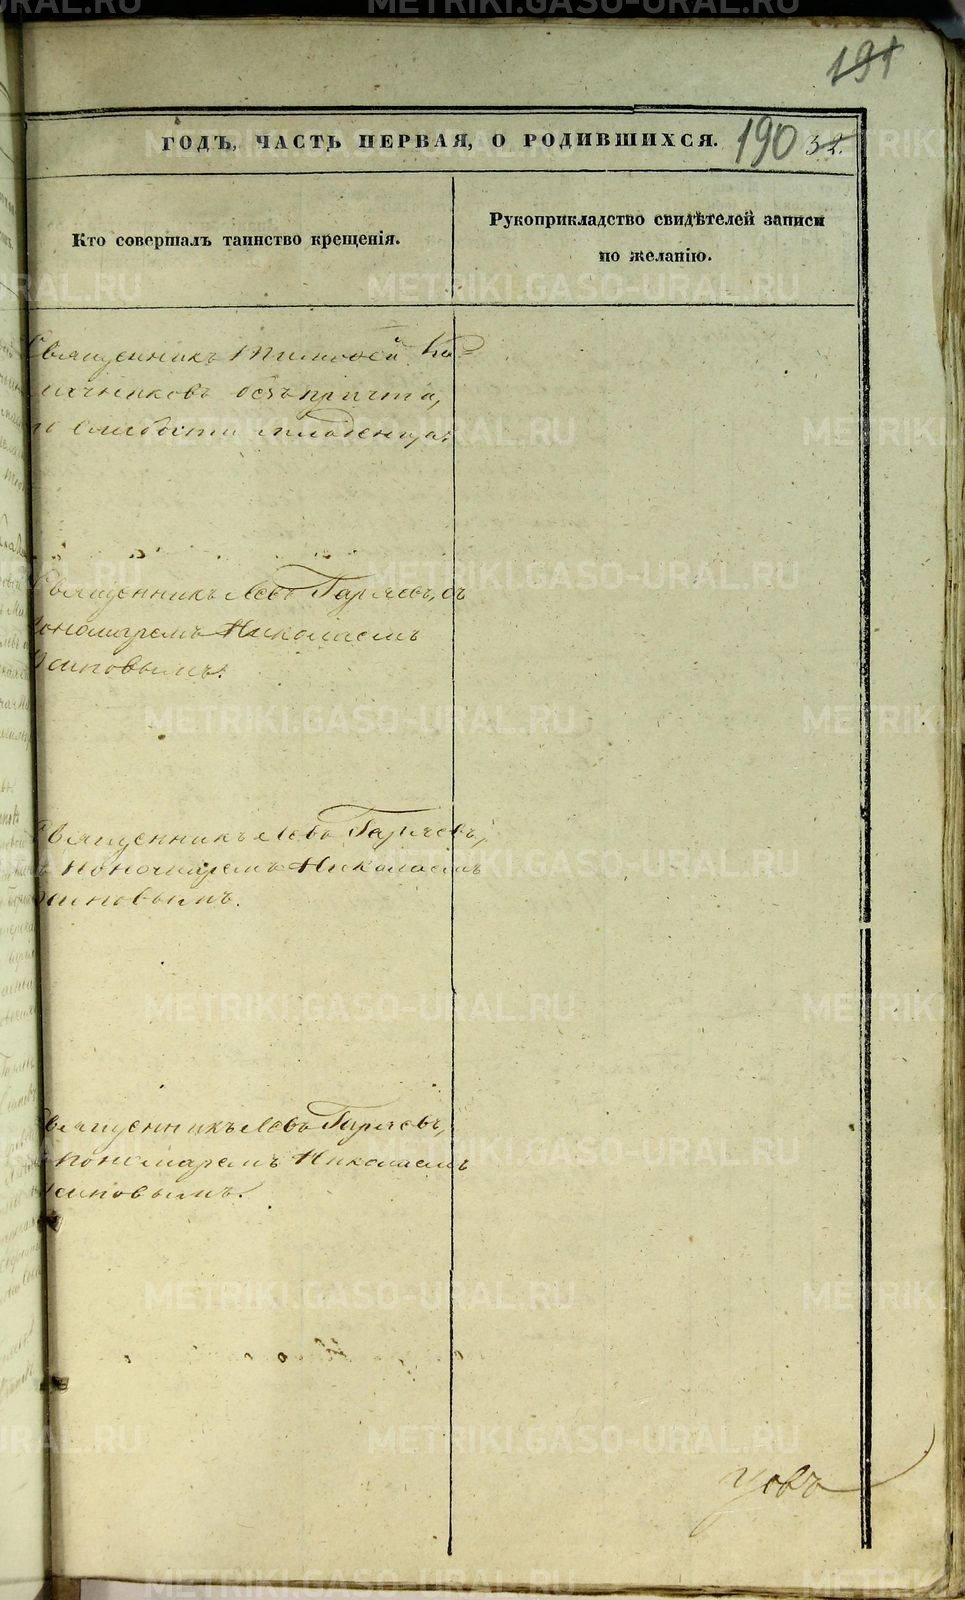 191
ГОДЪ, ЧАСТЬ ПЕРВАЯ, О РОДИВШИХСЯ. 190 32.
Кто совершалъ таинство крещенія.
Рукоприкладство свидѣтелей записи
по желанію.
Священникъ Тимофей Ка-
лачниковъ безъ причта,
по слабости младенца.
Священникъ Левъ Гаряевъ, съ
Пономаремъ Николаемъ
Осиповымъ.
Священникъ Левъ Гаряевъ,
съ пономаремъ Николаемъ
Осиповымъ.
Священникъ Левъ Гаряевъ,
съ пономаремъ Николаемъ
Осиповымъ.
METRIKI.GASO-URAL.RU